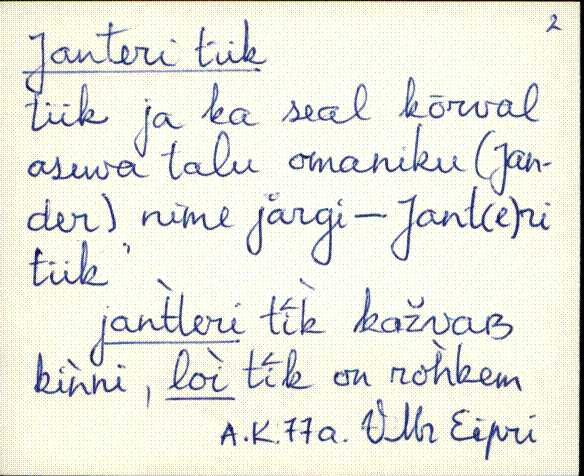 2
Janteri tiik
tiik ja ka seal kõrval
asuva talu omaniku (Jan-
der) nime järgi – Jant(e)ri
tiik
jant̀leri tík̀ kažvaʙ
kiǹni, loì tík on roh̀kem
A.K. 77a. VMr Eipri